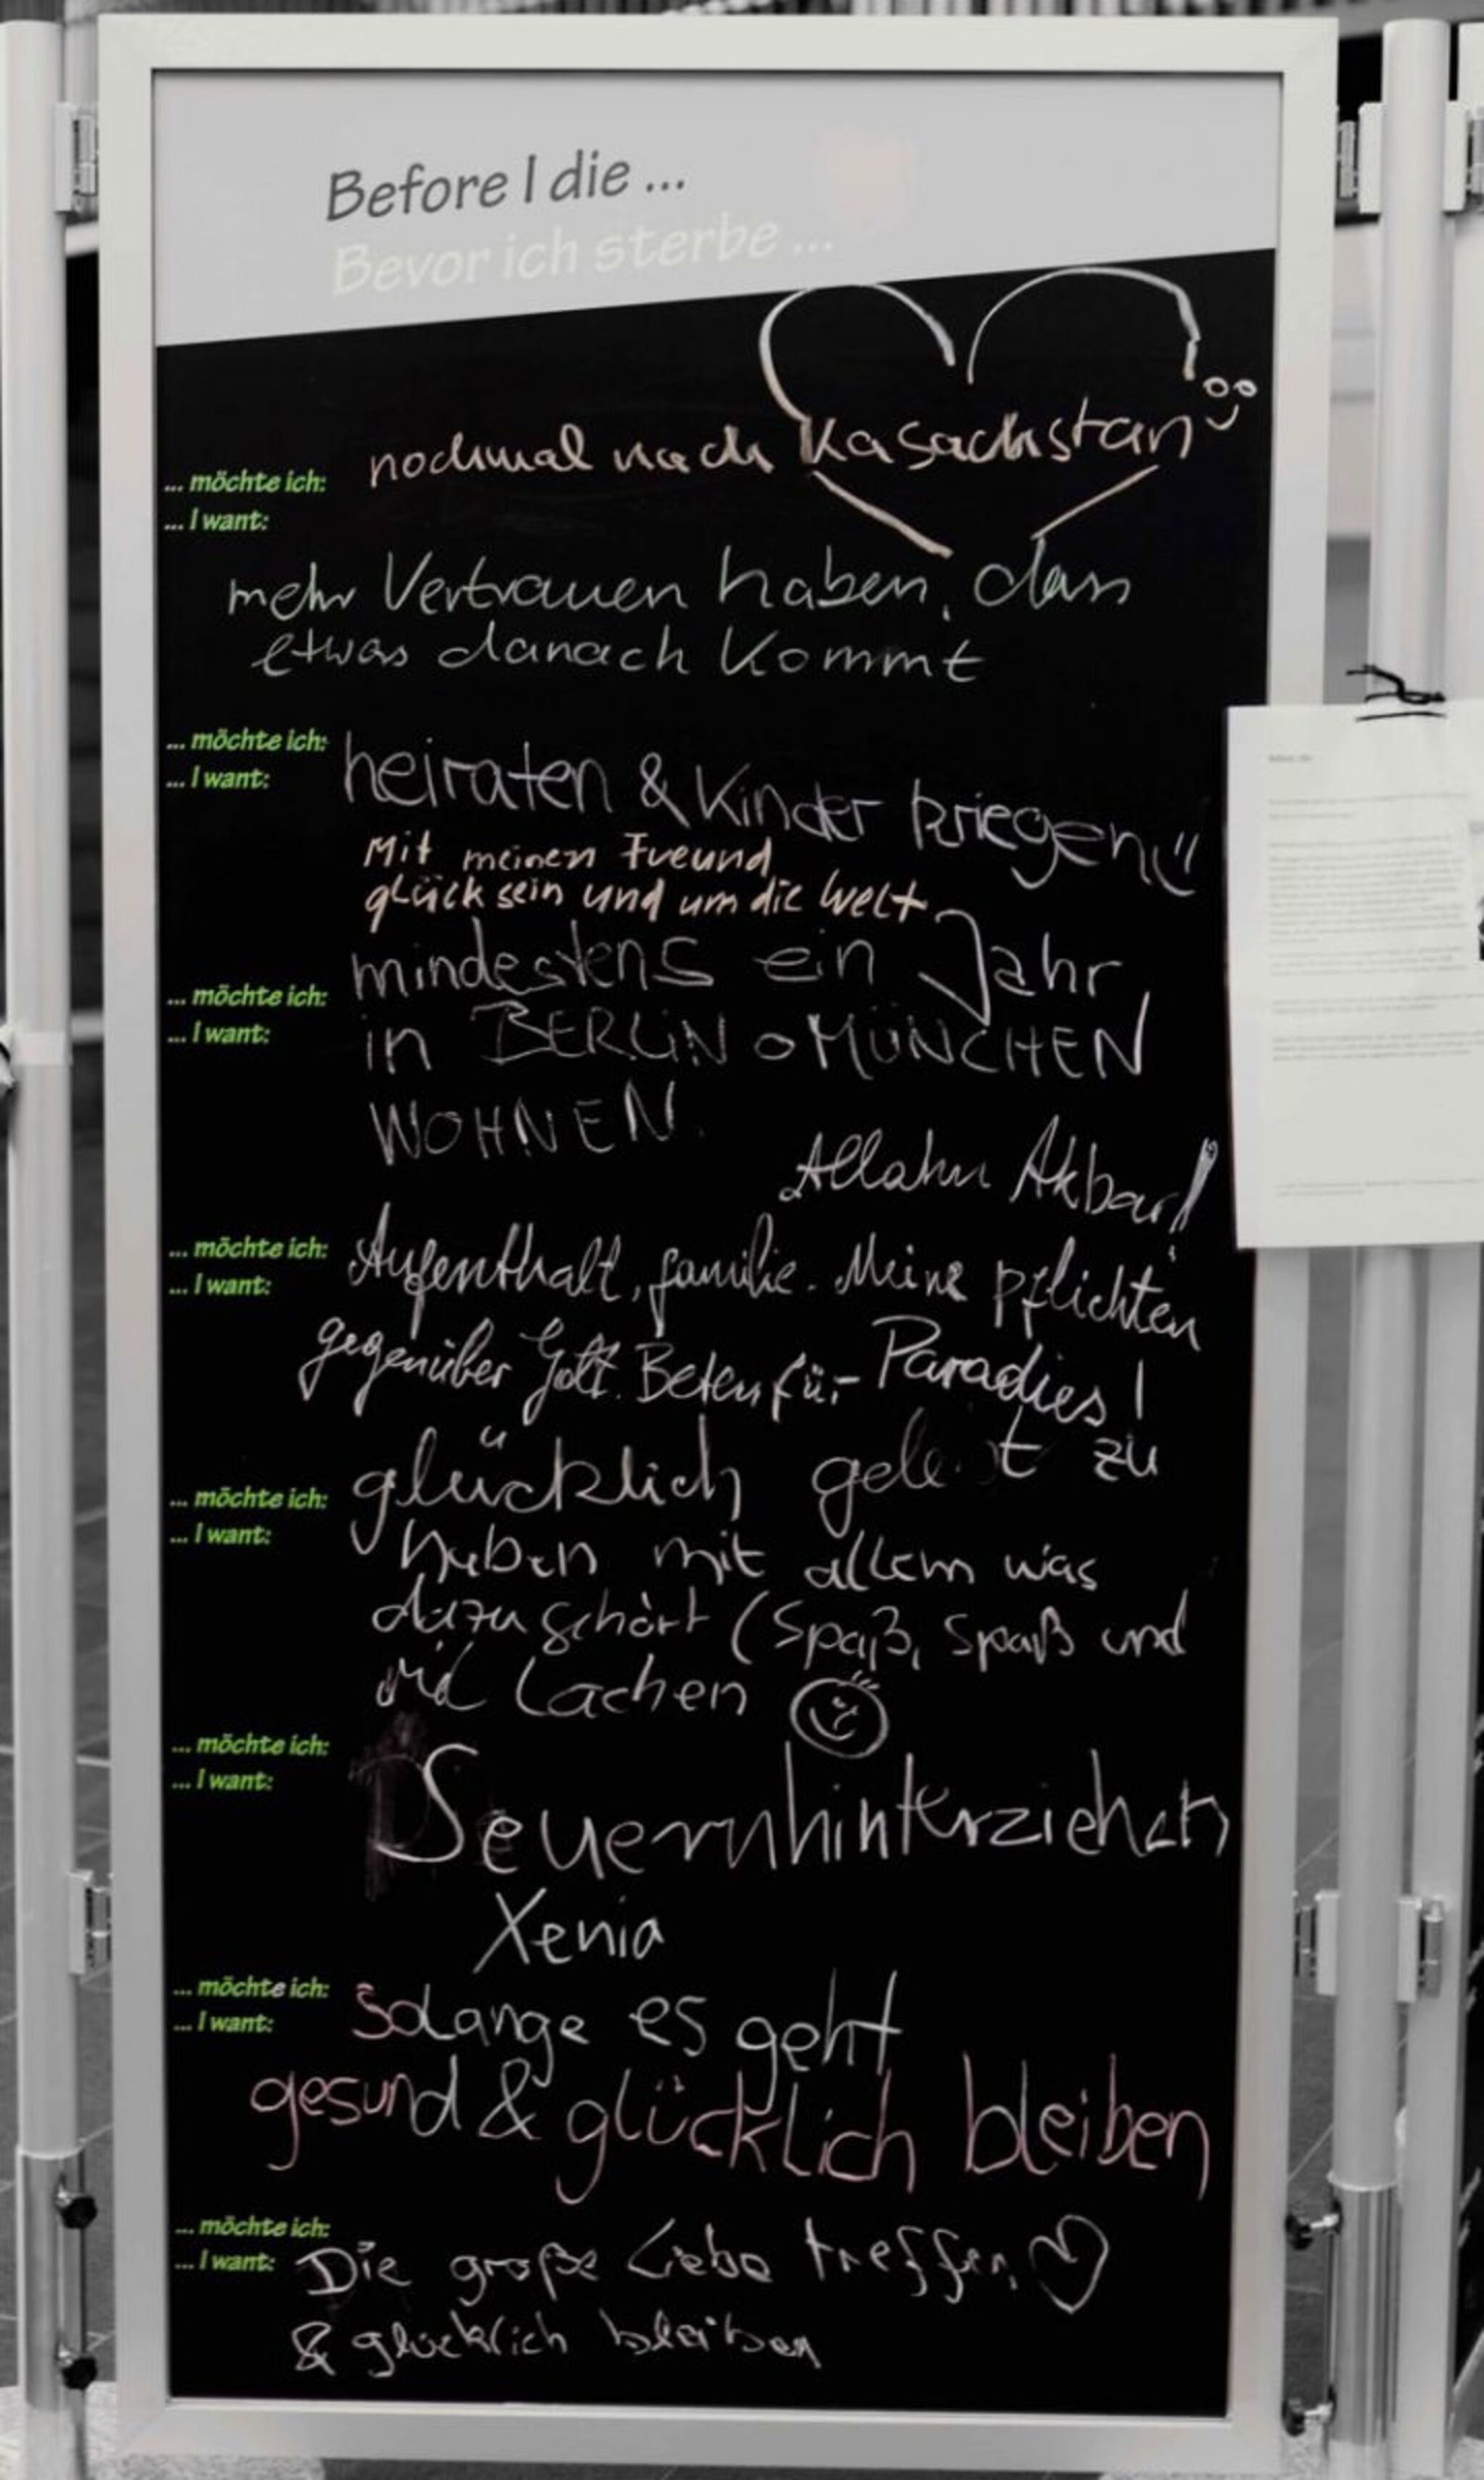 Before I die ...
Bevor ich sterbe ...
nochmal nach Kasachstan
... möchte ich:
... I want:
mehr Vertrauen haben, dass
etwas danach kommt
... möchte ich:
... I want:
heiraten & Kinder kriegen!!
Mit meinen Freund
glück sein und um die Welt
mindestens ein Jahr
... möchte ich:
... I want:
in BERLiN o MÜNCHEN
WOHNEN.
Allahu Akbar!
... möchte ich:
... I want:
Aufenthalt, familie. Meine pflichten
gegenüber Gott. Beten für Paradies!
glücklich zu
... möchte ich:
... I want:
haben mit allem was
dazu gehört (Spaß, Spaß und
Lachen
... möchte ich:
... I want:
Seuernhinterziehen
Xenia
... möchte ich:
... I want:
Solange es geht
gesund & glücklich bleiben
... möchte ich:
... I want:
Die große Liebe treffen
& glücklich bleiben